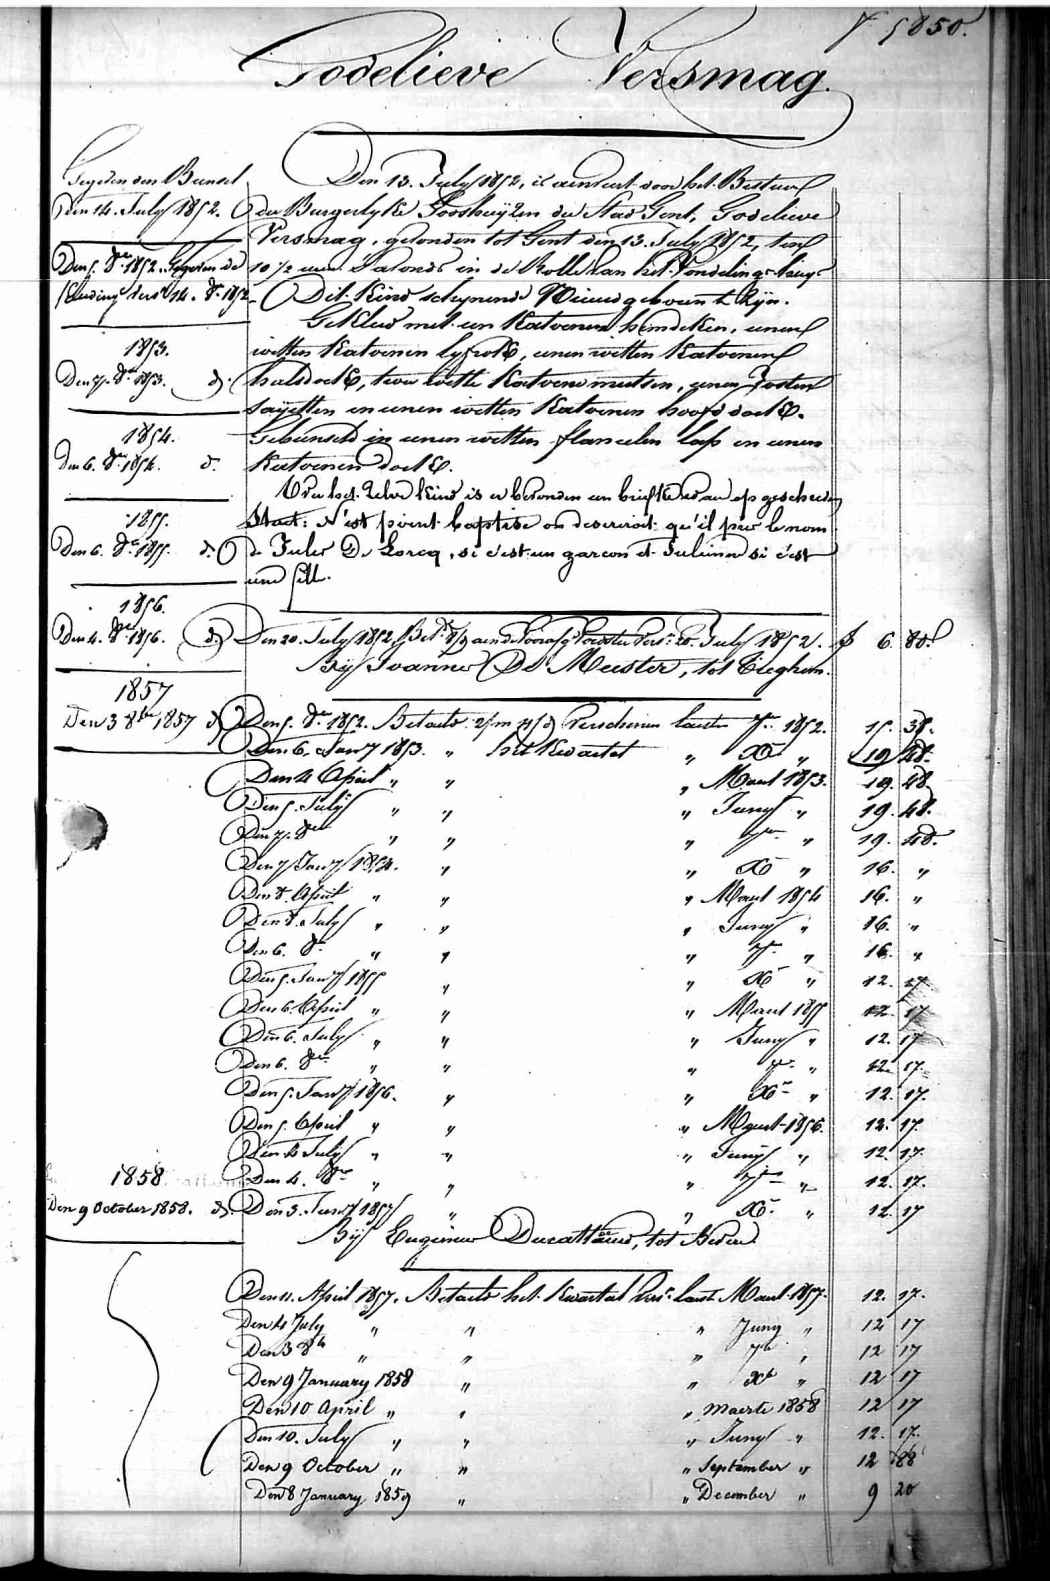 5850.
Godelieve Versmag.
Gegeven den Bunsel
den 14. July 1852.
Den 5. 8.re 1852. Gegeven de
Kleeding vers. 14. d. 1852
1853.
Den 7. 8.re 1853. d.
1854.
Den 6. 8.re 1854. d.
1855.
Den 6. 8.re 1855. d.
1856.
Den 4. 8.re 1856. d.
1857
Den 3 8bre 1857 d.
1858
Den 9 October 1858. d.
Den 13. July 1852, is aenveert door het Bestuer
der Burgerlyke Godshuyzen der Stad Gent, Godelieve
Versmag, gevonden tot Gent den 13. July 1852, ten
10 1/2 uren 's avonds in de Rolle van het Vondelinghuys
Dit Kind schynende Nieuwgeboren te zyn.
Gekleed met een Katoenen hemdeken, eenen
witten Katoenen lyfrok, eenen witten Katoenen
halsdoek, twee witte Katoene mutsen, eenen
sayetten en eenen witten Katoenen hoofddoek.
Gebunseld in eenen witten flanellen lap en eenen
Katoenen doek.
Over het zelve kind is er bevonden een briefken waer op geschreven
Staet: N'est point baptise on desireroit qu'il porte le nom
de Jules De Lorcq, si c'est un garcon et Julienne si c'est
une fille.
Den 20. July 1852, July 1852. f 6. 80.
Bij Joanne De Meester, tot Tieghem.
Den 5. 8.re 1852. Betaeld Verschenen laetsten 7.re 1852. 15. 38.
Den 6. Jan.y 1853. " het Kwartael " X.re " 19. 48.
Den 4 April " " " Maert 1853. 19. 48.
Den 5. July " " " Juny " 19. 48.
Den 7. 8.re " " " 7.re " 19. 48.
Den 7 Jan.y 1854. " " X.re " 16. "
Den 8. April " " " Maert 1854 16. "
Den 8. July " " " Juny " 16. "
Den 6. 8.re " " " 7.re " 16. "
Den 5. Jan.y 1855 " " X.re " 12. 17.
Den 6. April " " " Maert 1855 12. 17
Den 6. July " " " Juny " 12. 17
Den 6. 8.re " " " 7.re " 12. 17.
Den 5. Jan.y 1856. " " X.re " 12. 17.
Den 5. April " " " Maert 1856. 12. 17.
Den 4 July " " " Juny " 12. 17.
Den 4. 8.re " " " 7.re " 12. 17.
Den 5. Jan.y 1857 " " X.re " 12. 17
Bij Eugenie Ducattteeuw, tot
Den 11. April 1857. Betaeld het Kwartael Vers. laetst Maert 1857. 12. 17.
Den 4 July " " " Juny " 12 17
Den 3 8b " " " 7b " 12 17
Den 9 January 1858 " " Xb " 12 17
Den 10 April " " " Maerte 1858 12 17
Den 10. July " " " Juny " 12. 17.
Den 9 October " " " September " 12 88
Den 8 January 1859 " " December " 9 20